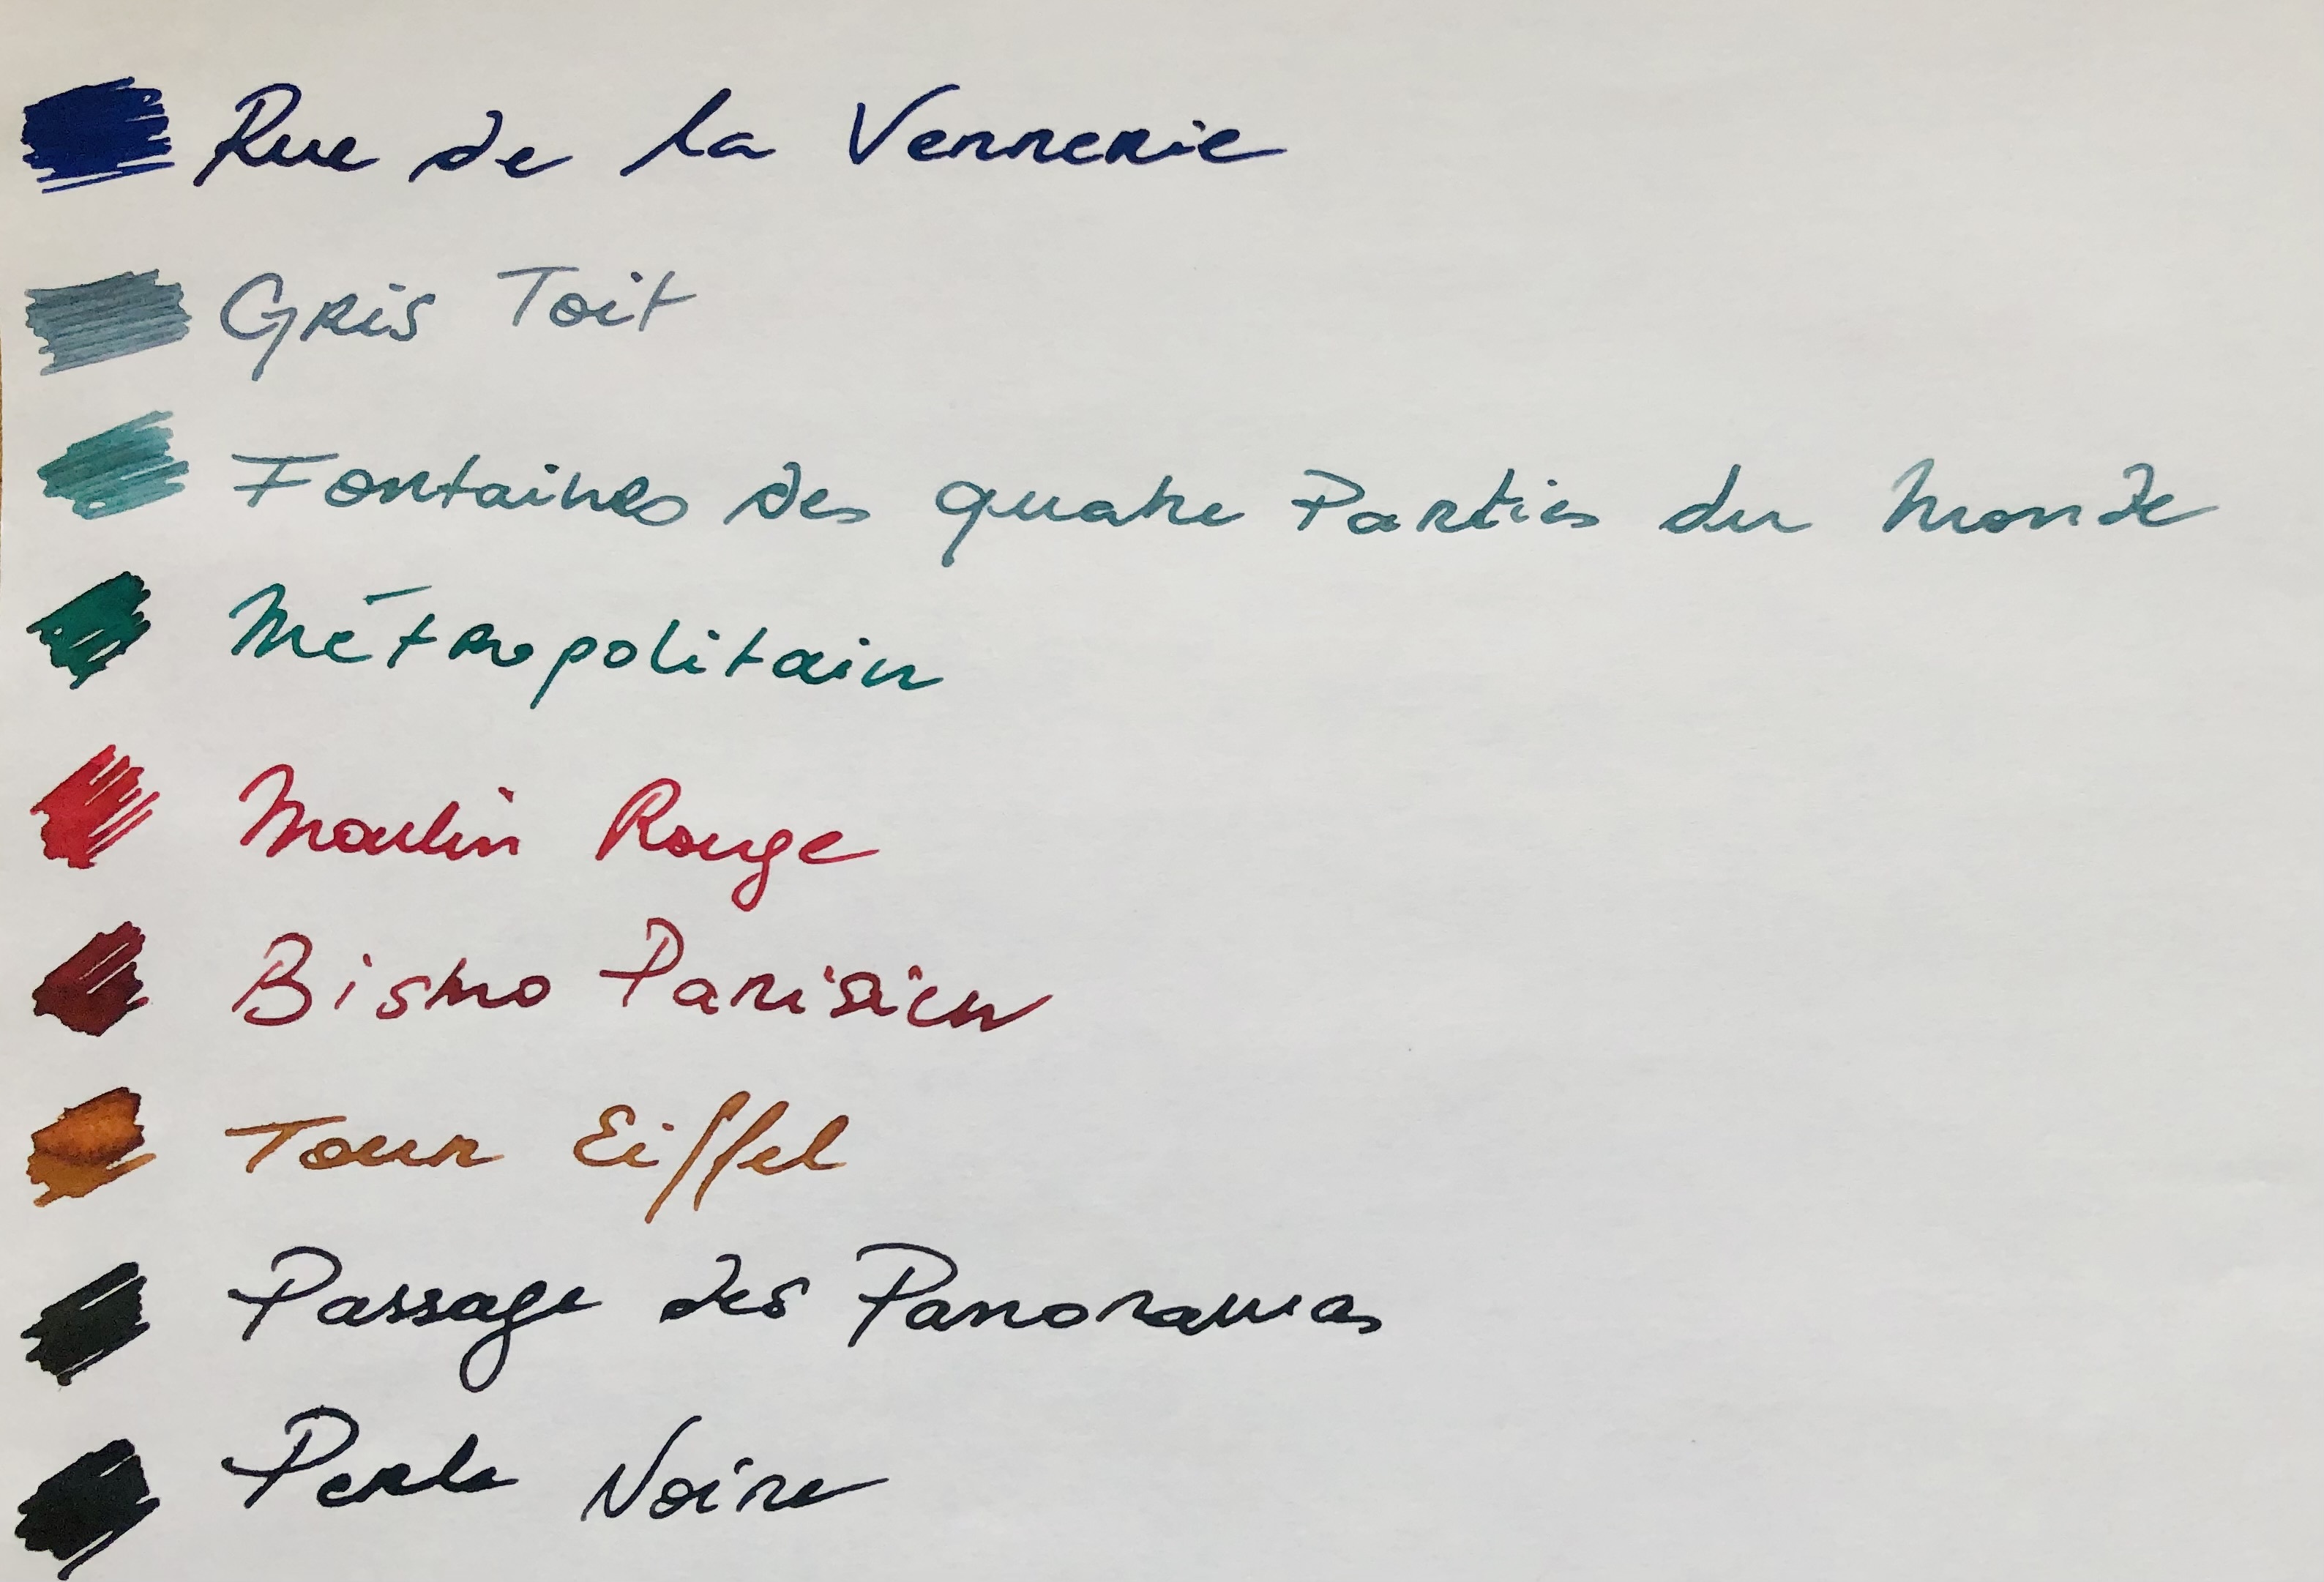 Rue de la Verrerie
Gris Toit
Fontaines des quatre Parties du Monde
Métropolitain
Moulin Rouge
Bistro Parisien
Tour Eiffel
Passage des Panoramas
Perle Noire